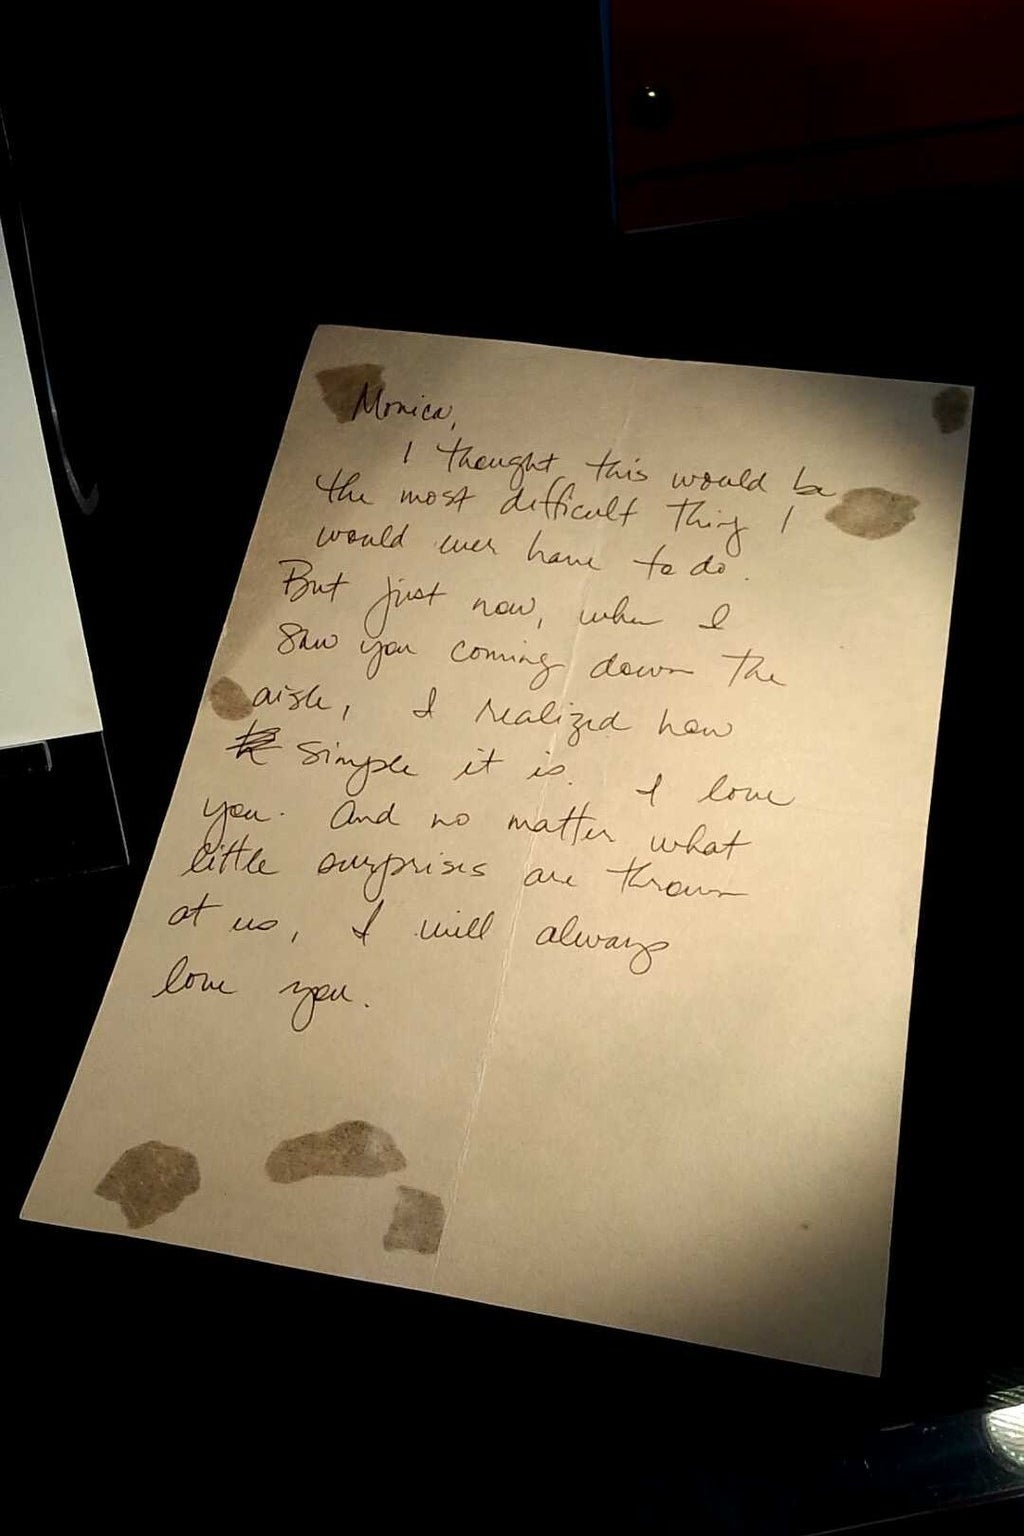 Monica,
I thought this would be
the most difficult thing I
would ever have to do.
But just now, when I
saw you coming down the
aisle, I realized how
simple it is. I love
you. And no matter what
little surprises are thrown
at us, I will always
love you.